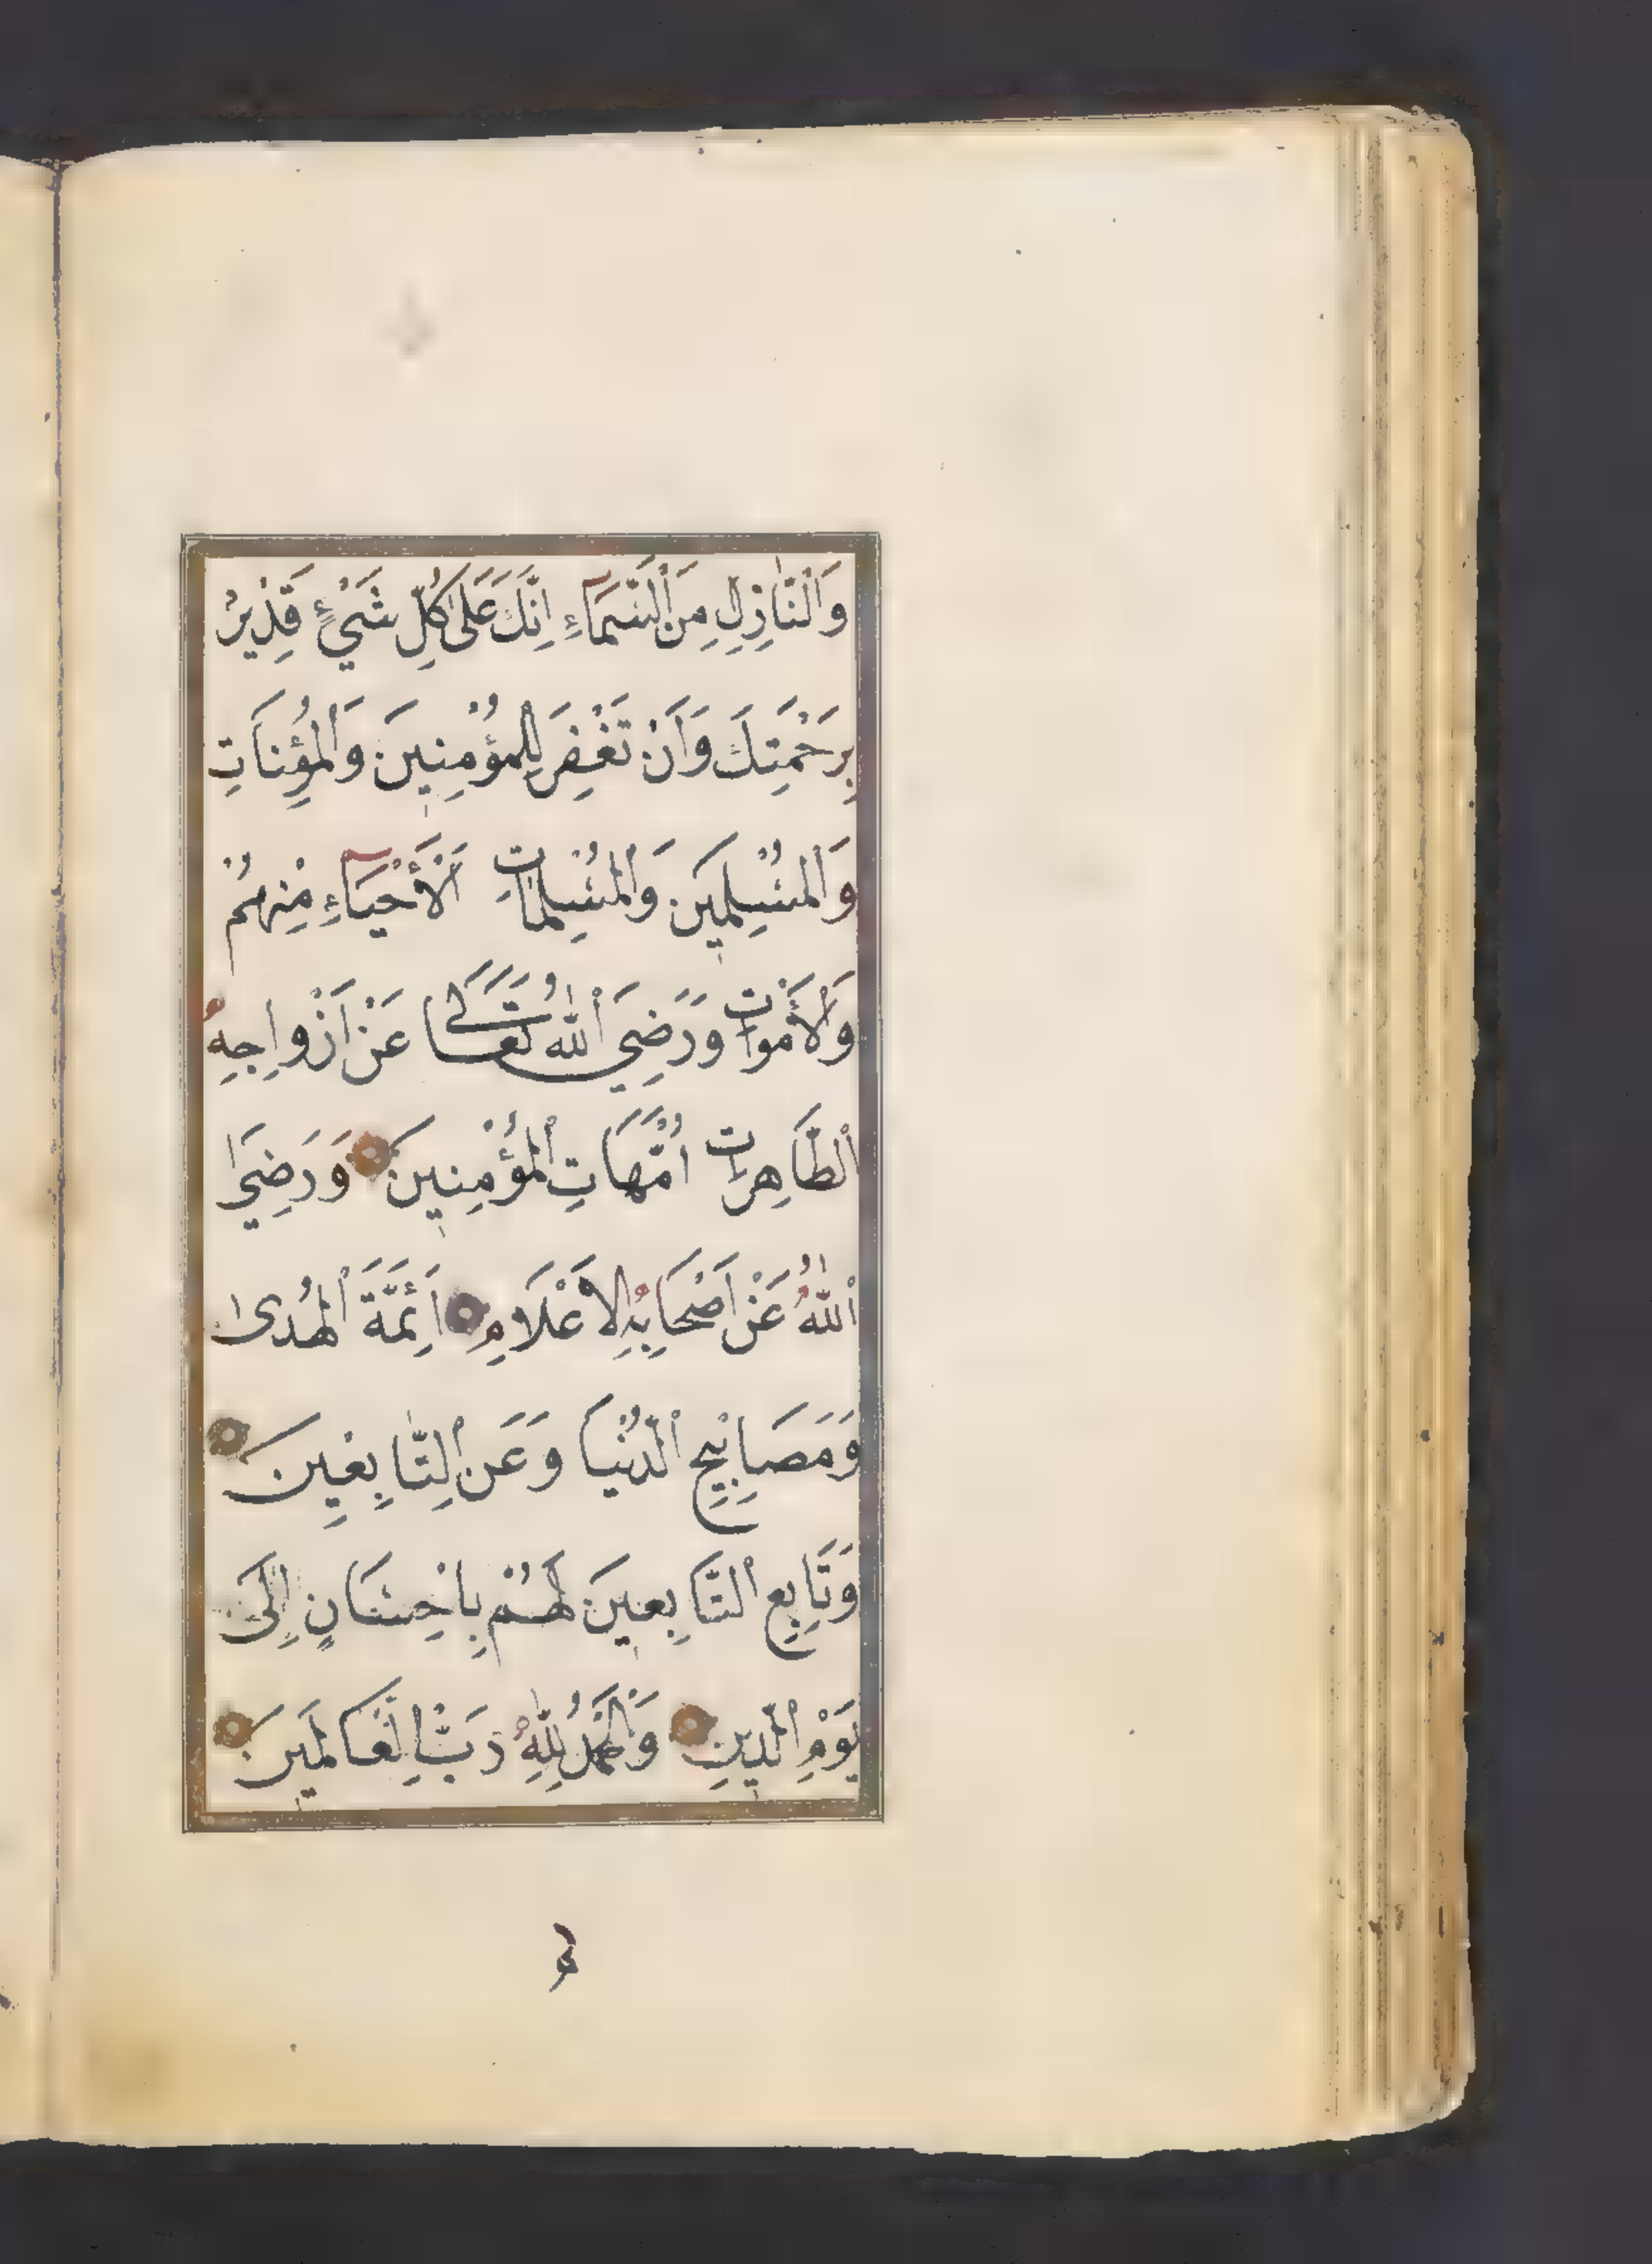 وَالنَّازِلِ مِنَ السَّمَآءِ اِنَّكَ عَلٰى كُلِّ شَيْءٍ قَدِيْرٌ
بِرَحْمَتِكَ وَاَنْ تَغْفِرَ لِلْمُؤْمِنِينَ وَالْمُؤْمِنَاتِ
وَالْمُسْلِمِينَ وَالْمُسْلِمَاتِ الْأَحْيَآءِ مِنْهُمْ
وَالْأَمْوَاتِ وَرَضِيَ اللّٰهُ تَعَالَى عَنْ اَزْوَاجِهِ
الطَّاهِرَاتِ اُمَّهَاتِ الْمُؤْمِنِينَ وَرَضِيَ
اللّٰهُ عَنْ اَصْحَابِهِ الْاَعْلَامِ اَئِمَّةَ الْهُدٰى
وَمَصَابِيْحِ الدُّنْيَا وَعَنِ التَّابِعِينَ
وَتَابِعِ التَّابِعِينَ لَهُمْ بِاِحْسَانٍ اِلَى
يَوْمِ الدِّينِ وَالْحَمْدُ لِلّٰهِ رَبِّ الْعَالَمِينَ